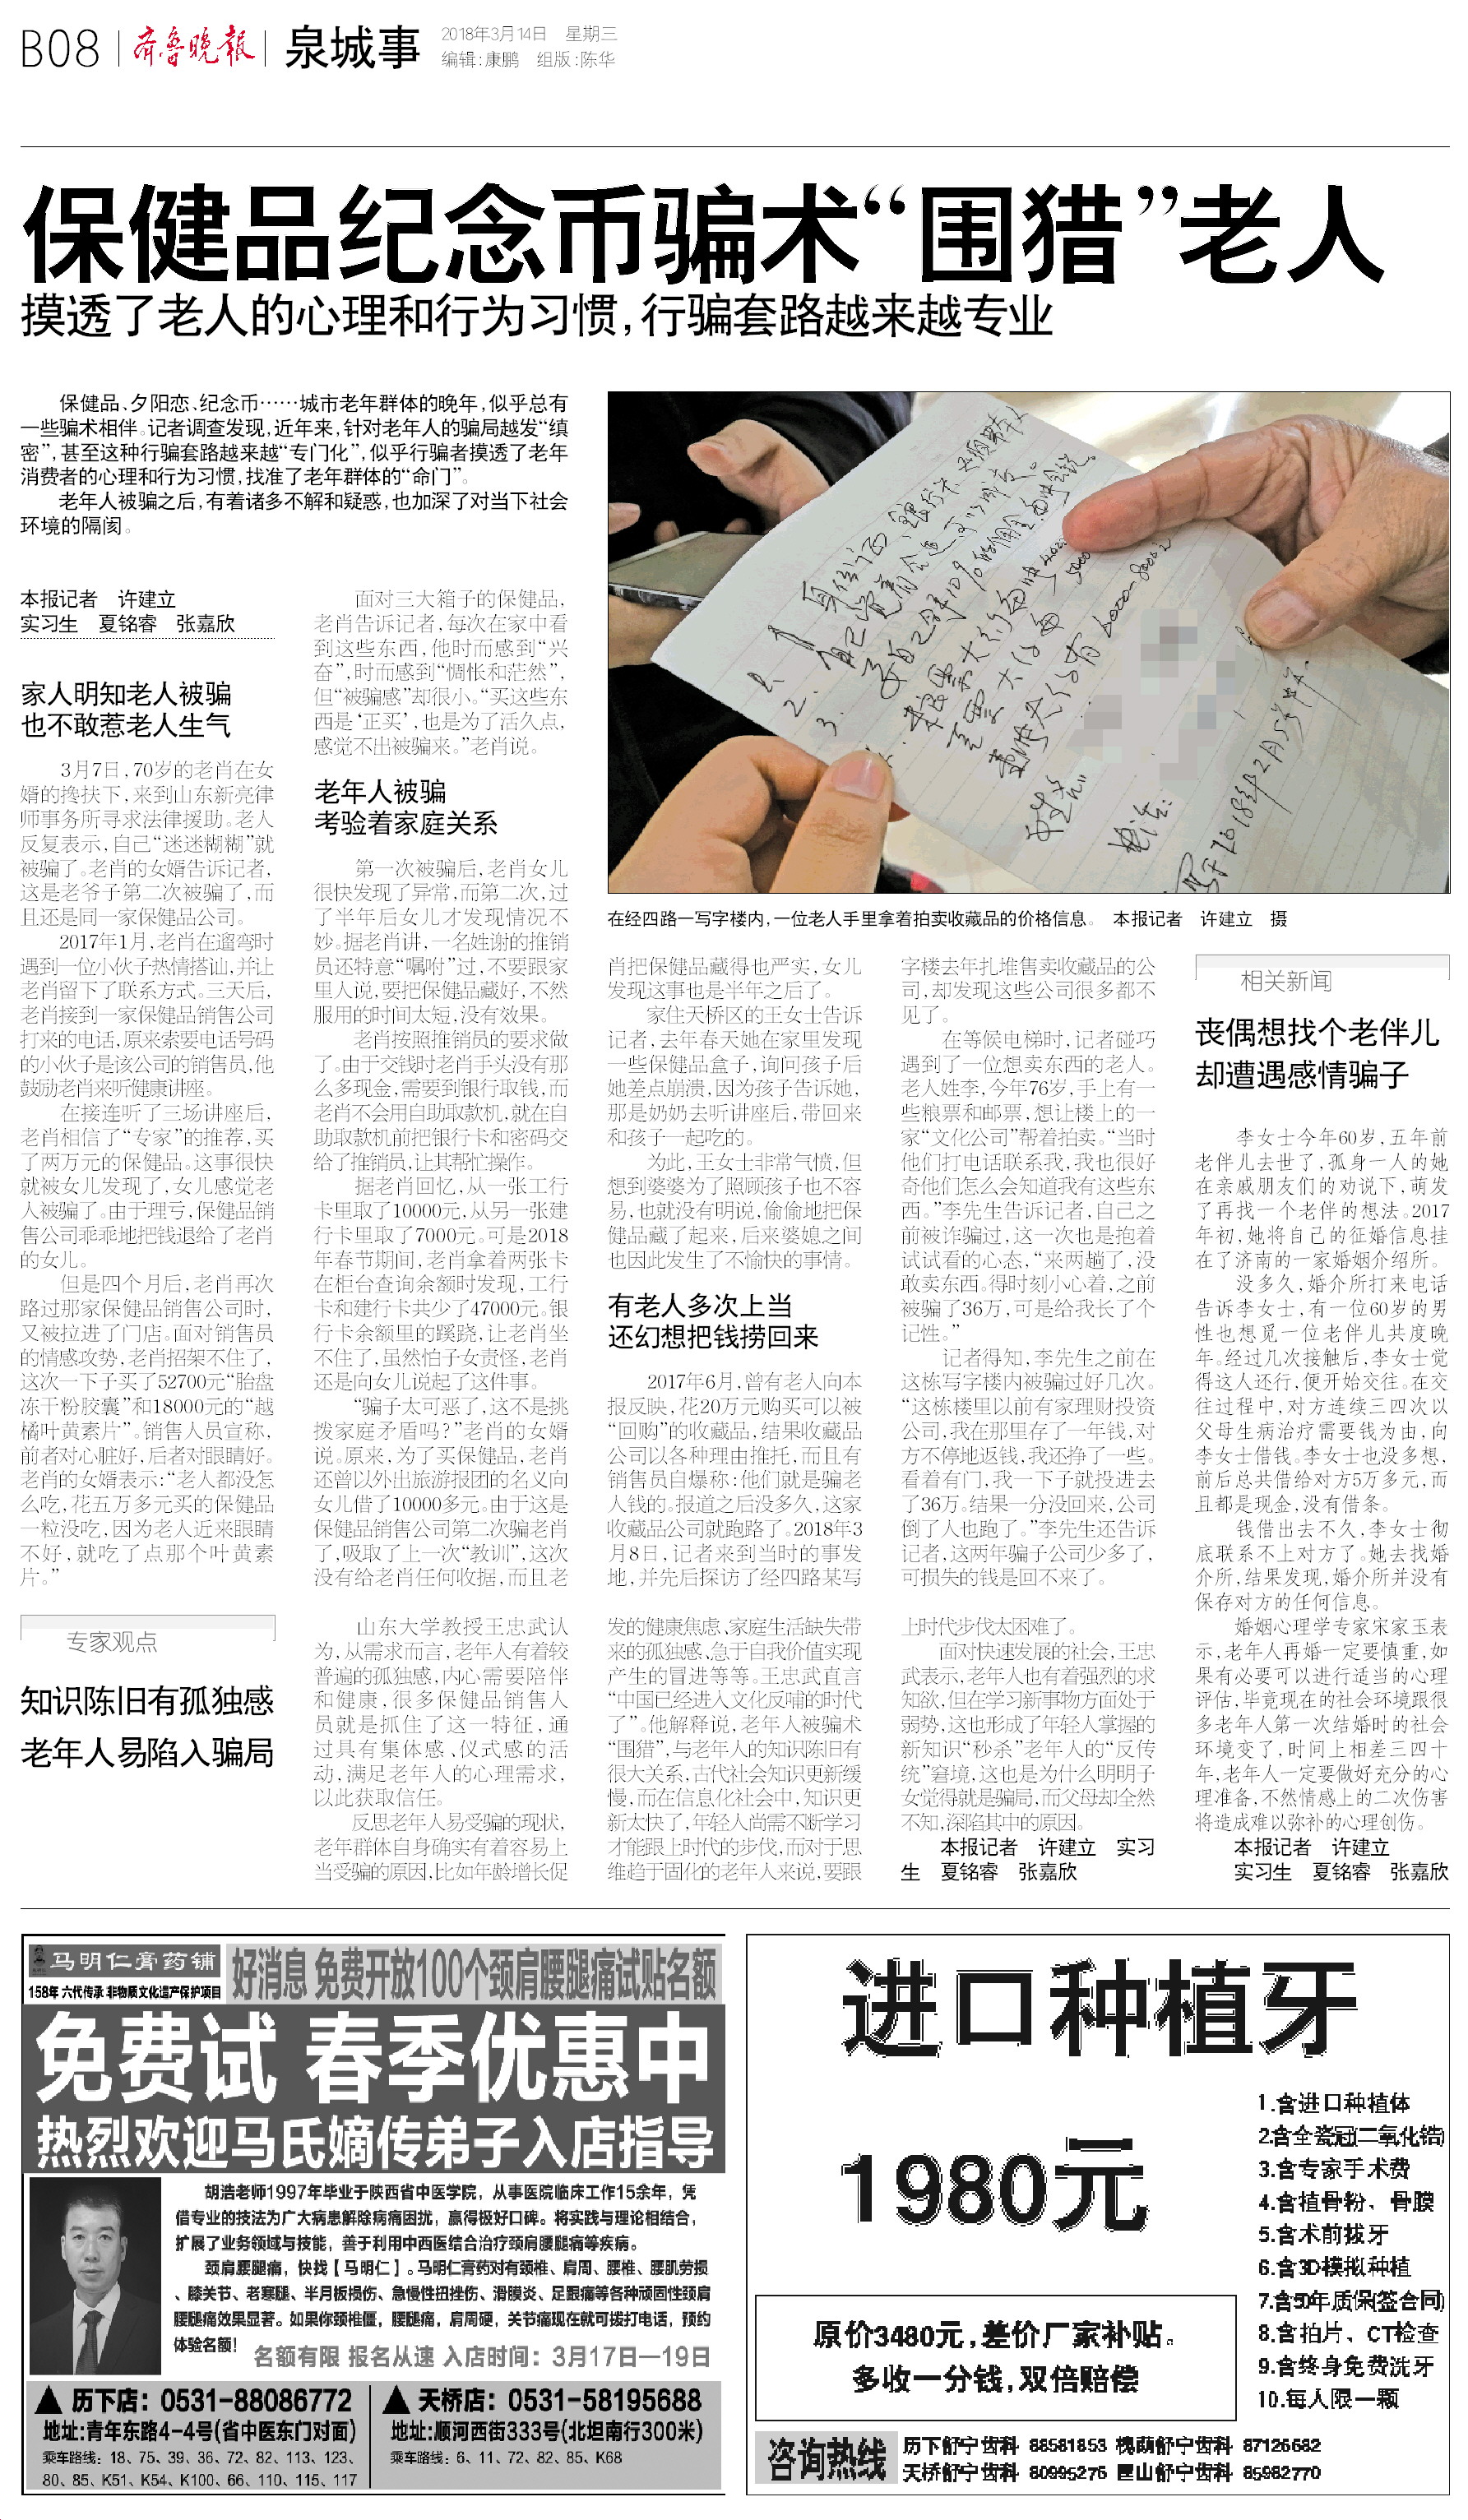 B08
齐鲁晚报
泉城事
2018年3月14日 星期三
编辑:康鹏 组版:陈华
保健品纪念币骗术“围猎”老人
摸透了老人的心理和行为习惯,行骗套路越来越专业
保健品、夕阳恋、纪念币……城市老年群体的晚年,似乎总有
一些骗术相伴。记者调查发现,近年来,针对老年人的骗局越发“缜
密”,甚至这种行骗套路越来越“专门化”,似乎行骗者摸透了老年
消费者的心理和行为习惯,找准了老年群体的“命门”。
老年人被骗之后,有着诸多不解和疑惑,也加深了对当下社会
环境的隔阂。
本报记者 许建立
实习生 夏铭睿 张嘉欣
家人明知老人被骗
也不敢惹老人生气
3月7日,70岁的老肖在女
婿的搀扶下,来到山东新亮律
师事务所寻求法律援助。老人
反复表示,自己“迷迷糊糊”就
被骗了。老肖的女婿告诉记者,
这是老爷子第二次被骗了,而
且还是同一家保健品公司。
2017年1月,老肖在遛弯时
遇到一位小伙子热情搭讪,并让
老肖留下了联系方式。三天后,
老肖接到一家保健品销售公司
打来的电话,原来索要电话号码
的小伙子是该公司的销售员,他
鼓励老肖来听健康讲座。
在接连听了三场讲座后,
老肖相信了“专家”的推荐,买
了两万元的保健品。这事很快
就被女儿发现了,女儿感觉老
人被骗了。由于理亏,保健品销
售公司乖乖地把钱退给了老肖
的女儿。
但是四个月后,老肖再次
路过那家保健品销售公司时,
又被拉进了门店。面对销售员
的情感攻势,老肖招架不住了,
这次一下子买了52700元“胎盘
冻干粉胶囊”和18000元的“越
橘叶黄素片”。销售人员宣称,
前者对心脏好,后者对眼睛好。
老肖的女婿表示:“老人都没怎
么吃,花五万多元买的保健品
一粒没吃,因为老人近来眼睛
不好,就吃了点那个叶黄素
片。”
面对三大箱子的保健品,
老肖告诉记者,每次在家中看
到这些东西,他时而感到“兴
奋”,时而感到“惆怅和茫然”,
但“被骗感”却很小。“买这些东
西是‘正买’,也是为了活久点,
感觉不出被骗来。”老肖说。
老年人被骗
考验着家庭关系
第一次被骗后,老肖女儿
很快发现了异常,而第二次,过
了半年后女儿才发现情况不
妙。据老肖讲,一名姓谢的推销
员还特意“嘱咐”过,不要跟家
里人说,要把保健品藏好,不然
服用的时间太短,没有效果。
老肖按照推销员的要求做
了。由于交钱时老肖手头没有那
么多现金,需要到银行取钱,而
老肖不会用自助取款机,就在自
助取款机前把银行卡和密码交
给了推销员,让其帮忙操作。
据老肖回忆,从一张工行
卡里取了10000元,从另一张建
行卡里取了7000元。可是2018
年春节期间,老肖拿着两张卡
在柜台查询余额时发现,工行
卡和建行卡共少了47000元。银
行卡余额里的蹊跷,让老肖坐
不住了,虽然怕子女责怪,老肖
还是向女儿说起了这件事。
“骗子太可恶了,这不是挑
拨家庭矛盾吗?”老肖的女婿
说。原来,为了买保健品,老肖
还曾以外出旅游报团的名义向
女儿借了10000多元。由于这是
保健品销售公司第二次骗老肖
了,吸取了上一次“教训”,这次
没有给老肖任何收据,而且老
在经四路一写字楼内,一位老人手里拿着拍卖收藏品的价格信息。 本报记者 许建立 摄
肖把保健品藏得也严实,女儿
发现这事也是半年之后了。
家住天桥区的王女士告诉
记者,去年春天她在家里发现
一些保健品盒子,询问孩子后
她差点崩溃,因为孩子告诉她,
那是奶奶去听讲座后,带回来
和孩子一起吃的。
为此,王女士非常气愤,但
想到婆婆为了照顾孩子也不容
易,也就没有明说,偷偷地把保
健品藏了起来,后来婆媳之间
也因此发生了不愉快的事情。
有老人多次上当
还幻想把钱捞回来
2017年6月,曾有老人向本
报反映,花20万元购买可以被
“回购”的收藏品,结果收藏品
公司以各种理由推托,而且有
销售员自爆称:他们就是骗老
人钱的。报道之后没多久,这家
收藏品公司就跑路了。2018年3
月8日,记者来到当时的事发
地,并先后探访了经四路某写
字楼去年扎堆售卖收藏品的公
司,却发现这些公司很多都不
见了。
在等候电梯时,记者碰巧
遇到了一位想卖东西的老人。
老人姓李,今年76岁,手上有一
些粮票和邮票,想让楼上的一
家“文化公司”帮着拍卖。“当时
他们打电话联系我,我也很好
奇他们怎么会知道我有这些东
西。”李先生告诉记者,自己之
前被诈骗过,这一次也是抱着
试试看的心态,“来两趟了,没
敢卖东西。得时刻小心着,之前
被骗了36万,可是给我长了个
记性。”
记者得知,李先生之前在
这栋写字楼内被骗过好几次。
“这栋楼里以前有家理财投资
公司,我在那里存了一年钱,对
方不停地返钱,我还挣了一些。
看着有门,我一下子就投进去
了36万。结果一分没回来,公司
倒了人也跑了。”李先生还告诉
记者,这两年骗子公司少多了,
可损失的钱是回不来了。
相关新闻
丧偶想找个老伴儿
却遭遇感情骗子
李女士今年60岁,五年前
老伴儿去世了,孤身一人的她
在亲戚朋友们的劝说下,萌发
了再找一个老伴的想法。2017
年初,她将自己的征婚信息挂
在了济南的一家婚姻介绍所。
没多久,婚介所打来电话
告诉李女士,有一位60岁的男
性也想觅一位老伴儿共度晚
年。经过几次接触后,李女士觉
得这人还行,便开始交往。在交
往过程中,对方连续三四次以
父母生病治疗需要钱为由,向
李女士借钱。李女士也没多想,
前后总共借给对方5万多元,而
且都是现金,没有借条。
钱借出去不久,李女士彻
底联系不上对方了。她去找婚
介所,结果发现,婚介所并没有
保存对方的任何信息。
婚姻心理学专家宋家玉表
示,老年人再婚一定要慎重,如
果有必要可以进行适当的心理
评估,毕竟现在的社会环境跟很
多老年人第一次结婚时的社会
环境变了,时间上相差三四十
年,老年人一定要做好充分的心
理准备,不然情感上的二次伤害
将造成难以弥补的心理创伤。
本报记者 许建立
实习生 夏铭睿 张嘉欣
专家观点
知识陈旧有孤独感
老年人易陷入骗局
山东大学教授王忠武认
为,从需求而言,老年人有着较
普遍的孤独感,内心需要陪伴
和健康,很多保健品销售人
员就是抓住了这一特征,通
过具有集体感、仪式感的活
动,满足老年人的心理需求,
以此获取信任。
反思老年人易受骗的现状,
老年群体自身确实有着容易上
当受骗的原因,比如年龄增长促
发的健康焦虑、家庭生活缺失带
来的孤独感、急于自我价值实现
产生的冒进等等。王忠武直言
“中国已经进入文化反哺的时代
了”。他解释说,老年人被骗术
“围猎”,与老年人的知识陈旧有
很大关系,古代社会知识更新缓
慢,而在信息化社会中,知识更
新太快了,年轻人尚需不断学习
才能跟上时代的步伐,而对于思
维趋于固化的老年人来说,要跟
上时代步伐太困难了。
面对快速发展的社会,王忠
武表示,老年人也有着强烈的求
知欲,但在学习新事物方面处于
弱势,这也形成了年轻人掌握的
新知识“秒杀”老年人的“反传
统”窘境,这也是为什么明明子
女觉得就是骗局,而父母却全然
不知,深陷其中的原因。
本报记者 许建立 实习
生 夏铭睿 张嘉欣
马明仁膏药铺
158年 六代传承 非物质文化遗产保护项目
好消息 免费开放100个颈肩腰腿痛试贴名额
免费试 春季优惠中
热烈欢迎马氏嫡传弟子入店指导
胡浩老师1997年毕业于陕西省中医学院,从事医院临床工作15余年,凭
借专业的技法为广大病患解除病痛困扰,赢得极好口碑。将实践与理论相结合,
扩展了业务领域与技能,善于利用中西医结合治疗颈肩腰腿痛等疾病。
颈肩腰腿痛,快找【马明仁】。马明仁膏药对有颈椎、肩周、腰椎、腰肌劳损
、膝关节、老寒腿、半月板损伤、急慢性扭挫伤、滑膜炎、足跟痛等各种顽固性颈肩
腰腿痛效果显著。如果你颈椎僵,腰腿痛,肩周硬,关节痛现在就可拨打电话,预约
体验名额!
名额有限 报名从速 入店时间:3月17日—19日
▲历下店:0531-88086772
地址:青年东路4-4号(省中医东门对面)
乘车路线:18、75、39、36、72、82、113、123、
80、85、K51、K54、K100、66、110、115、117
▲天桥店:0531-58195688
地址:顺河西街333号(北坦南行300米)
乘车路线:6、11、72、82、85、K68
进口种植牙
1980元
1.含进口种植体
2.含全瓷冠(二氧化锆)
3.含专家手术费
4.含植骨粉、骨膜
5.含术前拔牙
6.含3D模拟种植
7.含50年质保(签合同)
8.含拍片、CT检查
9.含终身免费洗牙
10.每人限一颗
原价3480元,差价厂家补贴。
多收一分钱,双倍赔偿
咨询热线
历下舒宁齿科 88581853 槐荫舒宁齿科 87126682
天桥舒宁齿科 80995276 匡山舒宁齿科 85982770